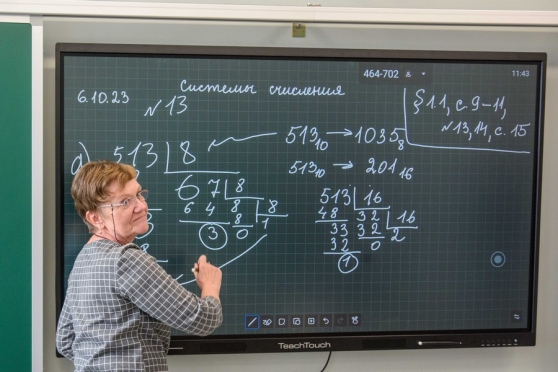 464-702
11:43
6.10.23
Системы счисления
§1.1, с. 9-11,
№13, 14, с. 15
№13
513₁₀ → 1035₈
а) 513 | 8
513₁₀ → 201₁₆
67 | 8
64 8 | 8
③ 0 1
513 | 16
48 32 | 16
33 32 2
32 0
①
TeachTouch